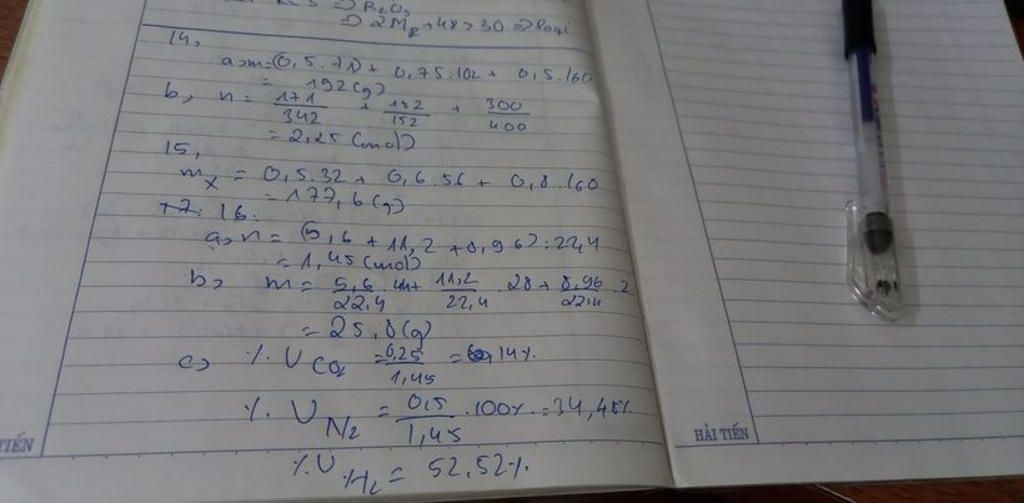 ⇒ R₂O₃
⇒ 2M_R + 48 > 30 ⇒ loại
14,
a, m = (0,5.71) + 0,75.102 + 0,5.160
= 192 (g)
b, n = 171/342 + 152/152 + 300/400
= 2,25 (mol)
15,
m_X = 0,5.32 + 0,6.56 + 0,8.160
= 177,6 (g)
16.
a, n = (5,6 + 11,2 + 8,96) : 22,4
= 1,45 (mol)
b, m = 5,6/22,4 .44 + 11,2/22,4 .28 + 8,96/22,4 .2
= 25,8 (g)
c, %V CO₂ = 0,25/1,45 = 14%
%V N₂ = 0,5/1,45 .100% = 34,48%
%V H₂ = 52,52%
TIẾN
HẢI TIẾN